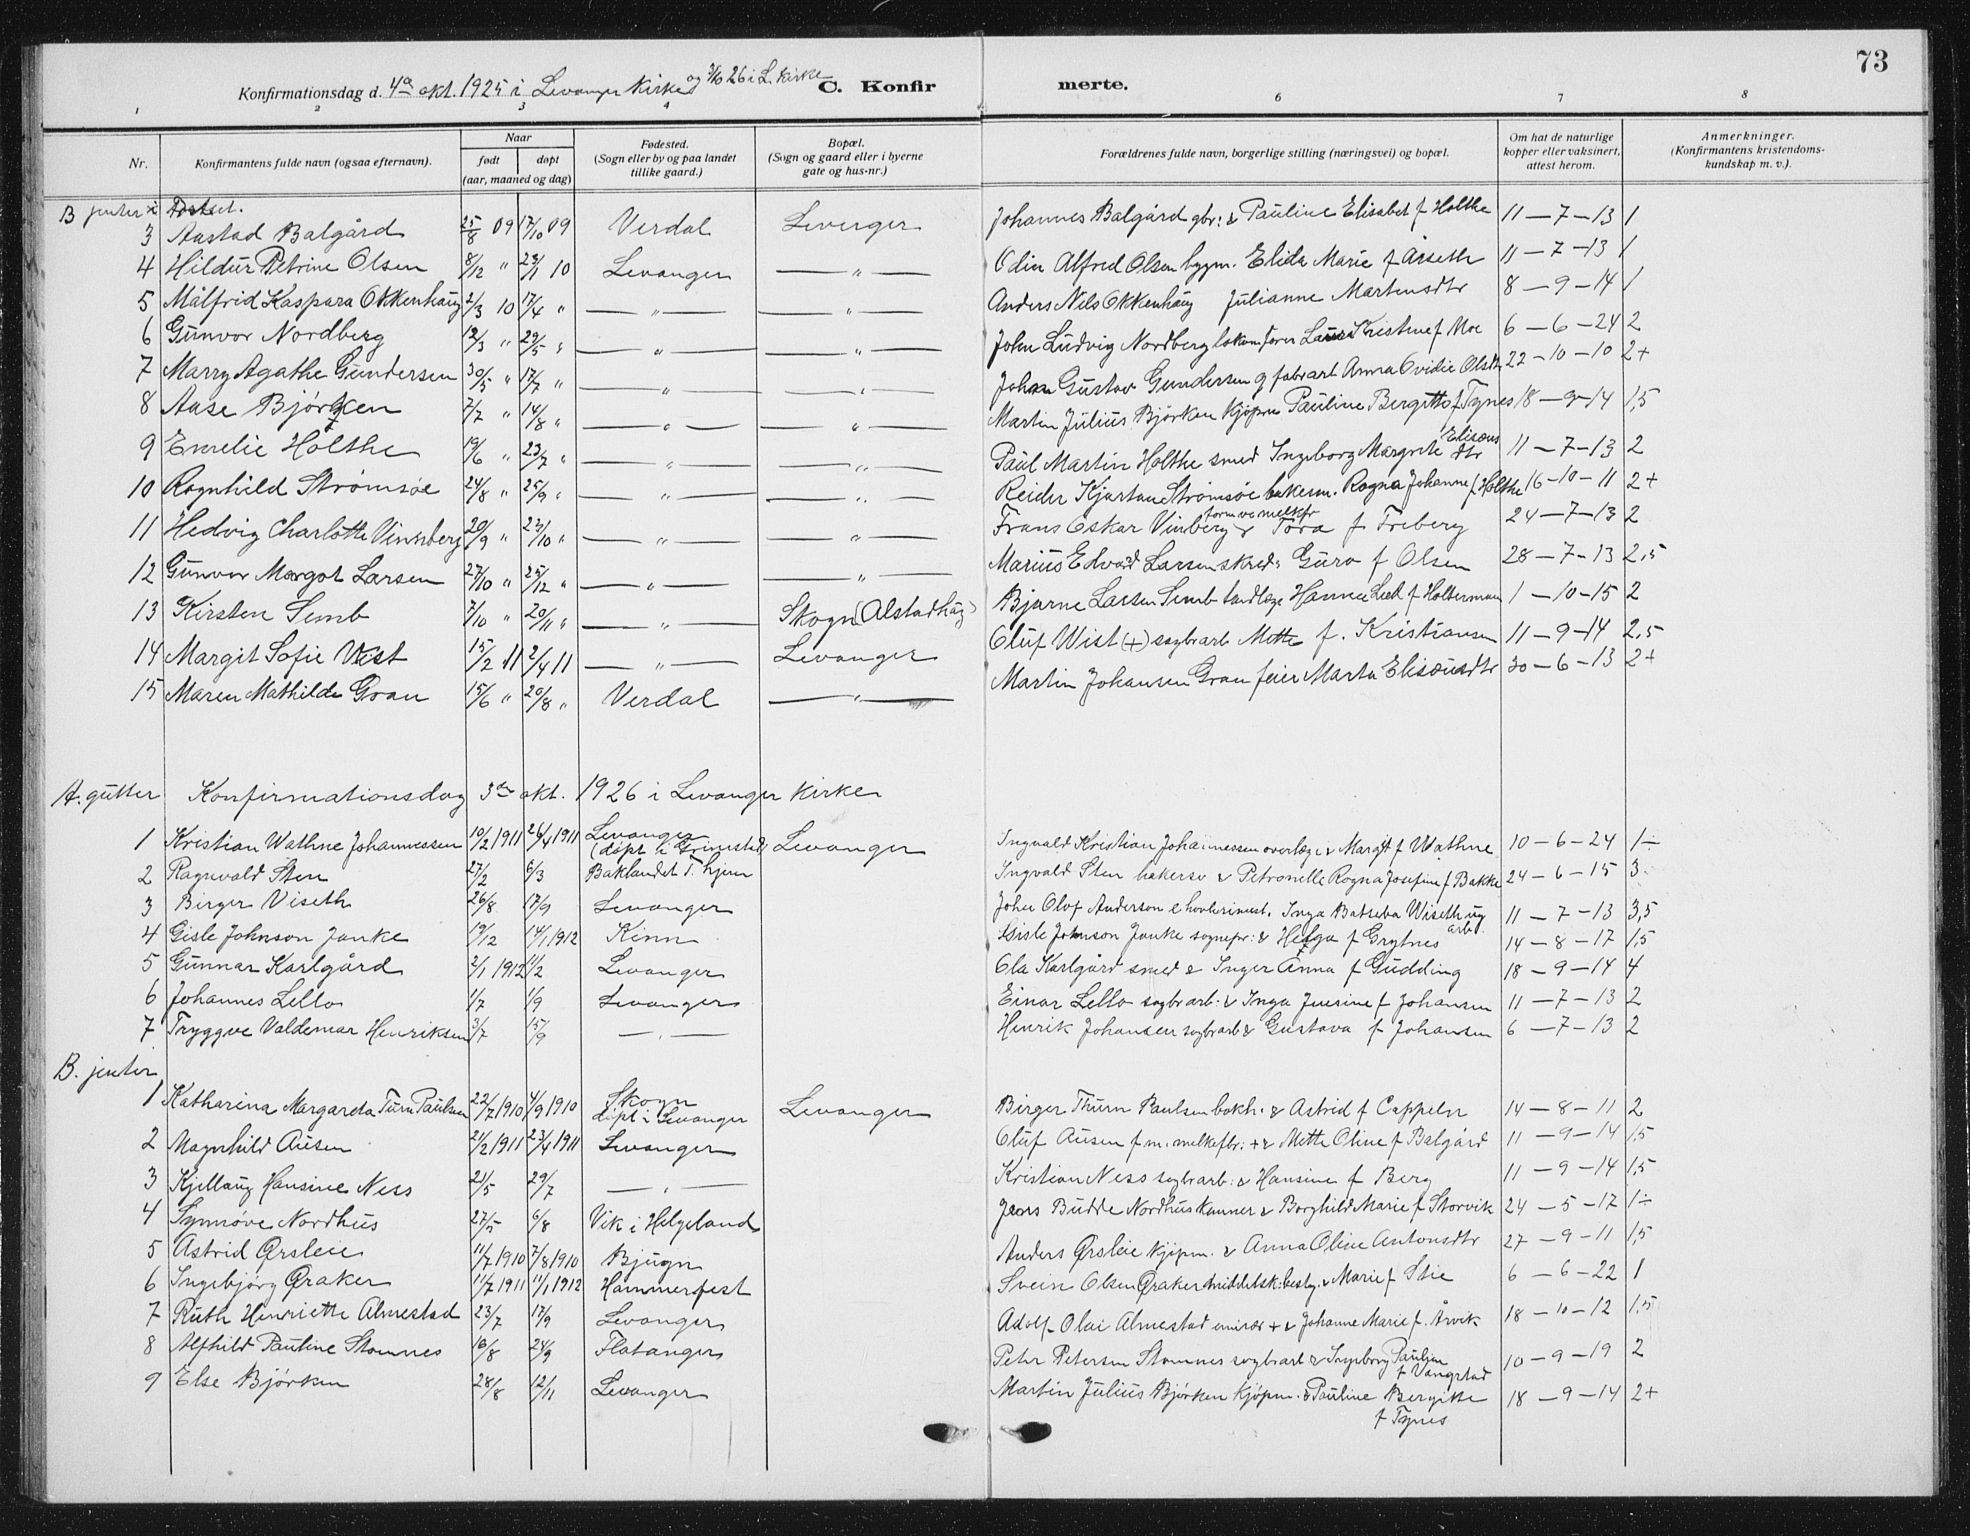 73
Konfirmationsdag d. 4de okt. 1925 i Levanger kirke og 3/10 26 i L. kirke C. Konfirmerte.
1 2 3 4 6 7 8
Nr. Konfirmantens fulde navn (ogsaa efternavn). Naar født døpt (aar, maaned og dag) Fødested. (Sogn eller by og paa landet tillike gaard.) Bopæl. (Sogn og gaard eller i byerne gate og hus-nr.) Forældrenes fulde navn, borgerlige stilling (næringsvei) og bopæl. Om hat de naturlige kopper eller vaksinert, attest herom. Anmerkninger. (Konfirmantens kristendoms-kundskap m. v.).
B jenter Fortset.
3 Aastad Balgård 25/8 09 17/10 09 Verdal Levanger Johannes Balgård gbr: & Pauline Elisabet f Holthe 11-7-13 1
4 Hildur Petrine Olsen 8/12 " 23/1 10 Levanger — " — Odin Alfred Olsen bygm. Elida Marie f Åiseth 11-7-13 1
5 Målfrid Kaspara Okkenhaug 2/3 10 17/4 " — " — — " — Anders Nils Okkenhaug Julianne Martensdtr 8-9-14 1
6 Gunvor Nordberg 12/3 " 29/5 " — " — — " — John Ludvig Nordberg lokomfører Laura Kristine f Moe 6-6-24 2
7 Marry Agathe Gundersen 30/5 " 17/7 " — " — — " — Johan Gustav Gundersen g fabrarb Anna Ovidie Olsdtr 22-10-10 2+
8 Aase Bjørken 7/7 " 14/8 " — " — — " — Martin Julius Bjørken Kjøpm Pauline Bergitte f Tynes 18-9-14 1,5
9 Emelie Holthe 19/6 " 23/7 " — " — — " — Paul Martin Holthe smed Ingeborg Margrete Elisæusdtr 11-7-13 2
10 Ragnhild Strømsøe 24/8 " 25/9 " — " — — " — Reidar Kjartan Strømsøe bakerm. Ragna Johanne f Holthe 16-10-11 2+
11 Hedvig Charlotte Vinnberg 20/9 " 23/10 " — " — — " — Frans Oskar Vinberg & Tora f Freberg 24-7-13 2
12 Gunvor Margot Larsen 27/10 " 25/12 " — " — — " — Marius Edvard Larsen skred. Guro f Olsen 28-7-13 2,5
13 Kirsten Semb 7/10 " 20/11 " — " — Skogn (Alstadhaug) Bjarne Larsen Semb tandlæge Hanna f Holterman 1-10-15 2
14 Margit Sofie Wist 15/2 11 2/4 11 — " — Levanger Oluf Wist (+) sagbrarb Mette f. Kristiansen 11-9-14 2,5
15 Maren Mathilde Gran 15/6 " 20/8 " Verdal — " — Martin Johansen Gran feier Marta Elisæusdtr 30-6-13 2+
A. gutter Konfirmationsdag 3die okt. 1926 i Levanger kirke
1 Kristian Wathne Johannessen 10/2 1911 26/4 1911 Levanger (døpt i Grimstad) Levanger Ingvald Kristian Johannessen overlæge & Margit f Wathne 10-6-24 1÷
2 Ragnvald Sten 27/2 6/3 Baklandet T.hjem Ingvald Sten bakersv & Petronelle Ragna Josefine f Bakke 24-6-15 3
3 Birger Viseth 26/8 17/9 Levanger Johen Olof Anderson Inga Batseba Wiseth ug arb. 11-7-13 3,5
4 Gisle Johnson Janke 19/12 14/1 1912 Kinn Gisle Johnson Janke sognepr: & Helga f Grytnes 14-8-17 1,5
5 Gunnar Karlgård 2/1 1912 11/2 Levanger Ola Karlgård smed & Inger Anna f Gudding 18-9-14 4
6 Johannes Lello 1/7 1/9 Levanger Einar Lello sagbrarb: & Inga f Johansen 11-7-13 2
7 Tryggve Valdemar Henriksen 3/7 15/9 — " — Henrik Johansen sagbrarb & Gustava f Johansen 6-7-13 2
B. jenter
1 Katharina Margareta Turn Paulsen 22/7 1910 4/9 1910 Skogn døpt i Levanger Levanger Birger Thurn Paulsen bokh. & Astrid f Cappeln 14-8-11 2
2 Magnhild Ausen 21/2 1911 23/4 1911 Levanger Oluf Ausen f.m. melkefbr: + & Mette Oline f Balgård 11-9-14 1,5
3 Kjellaug Hansine Ness 21/5 29/7 — " — Kristian Ness sagbrarb: & Hansine f Berg 11-9-14 1,5
4 Synnøve Nordhus 27/5 6/8 Vik i Helgeland Jens Budde Nordhus & Borghild Marie f Storvik 24-5-17 1÷
5 Astrid Ørsleie 11/7 1910 7/8 1910 Bjugn Anders Ørsleie kjøpm. & Anna Oline Antonsdtr 27-9-11 1,5
6 Ingebjørg Øraker 11/7 1911 11/1 1912 Hammerfest Svein Olsen Øraker middelsk:besty. & Marie f Stie 6-6-22 1
7 Ruth Henriette Almestad 23/7 17/9 Levanger Adolf Olai Almestad emisær + & Johanne Marie f. Årvik 18-10-12 1,5
8 Alfhild Pauline Stamnes 16/8 24/9 Flatanger Peter Petersen Stamnes sagbrarb & Ingeborg Pauline f Vangstad 10-9-19 2
9 Else Bjørken 28/8 12/11 Levanger Martin Julius Bjørken Kjøpm. & Pauline Bergitte f Tynes 18-9-14 2+